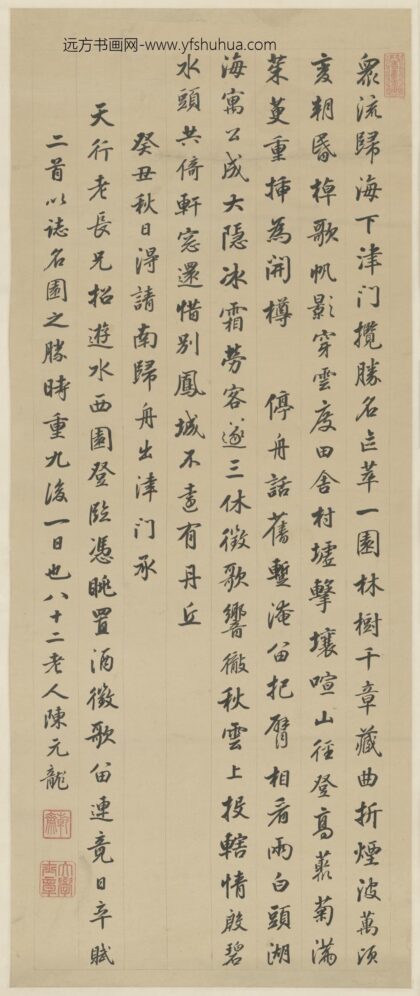 远方书画网-www.yfshuhua.com
衆流歸海下津门攬勝名區萃一園林樹千章藏曲折煙波萬頃
變朝昏棹歌帆影穿雲度田舍村墟擊壤喧山徑登高藂菊滿
茱萸重揷為開樽 停舟話舊暫淹留把臂相看兩白頭湖
海寓公成大隱冰霜勞客遂三休徵歌響徹秋雲上投轄情殷碧
水頭共倚軒窓還惜别鳳城不遠有丹丘
癸丑秋日得請南歸舟出津门承
天行老長兄招遊水西園登臨憑眺置酒徵歌留連竟日卒賦
二首以誌名園之勝時重九後一日也八十二老人陳元龍